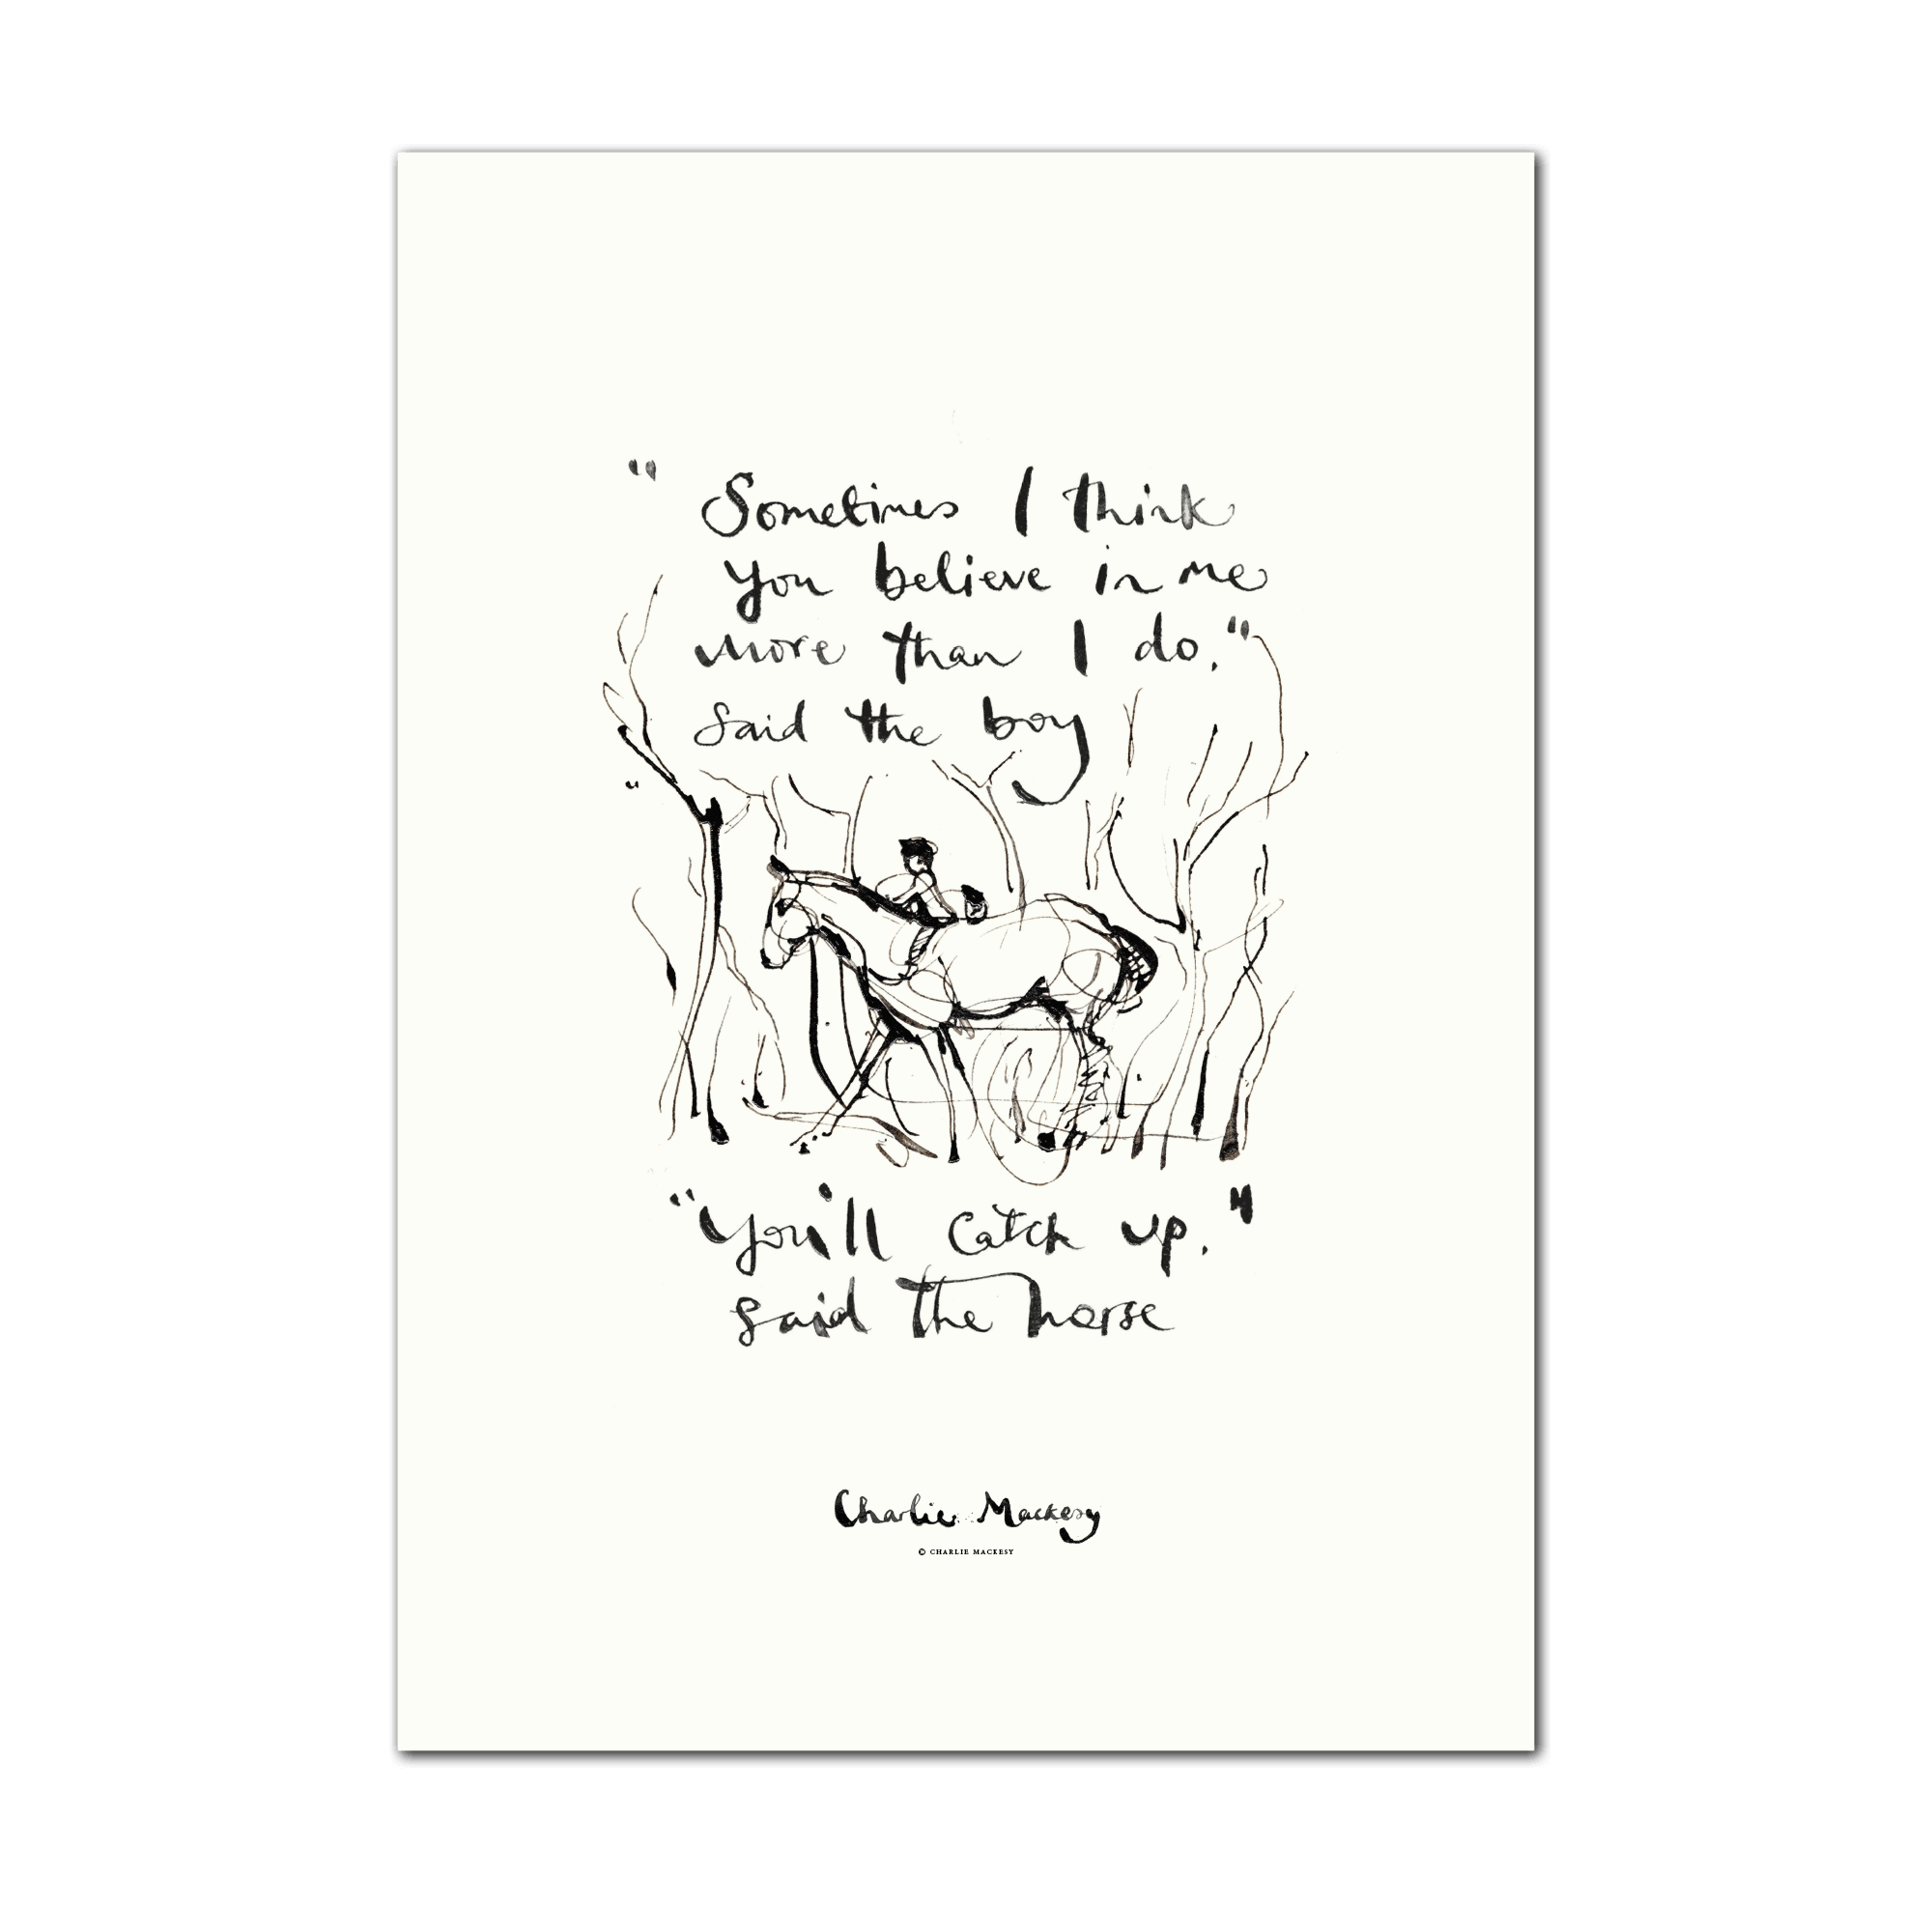 "Sometimes I think
you believe in me
more than I do."
said the boy
"You'll catch up."
said the horse
Charlie Mackesy
© CHARLIE MACKESY